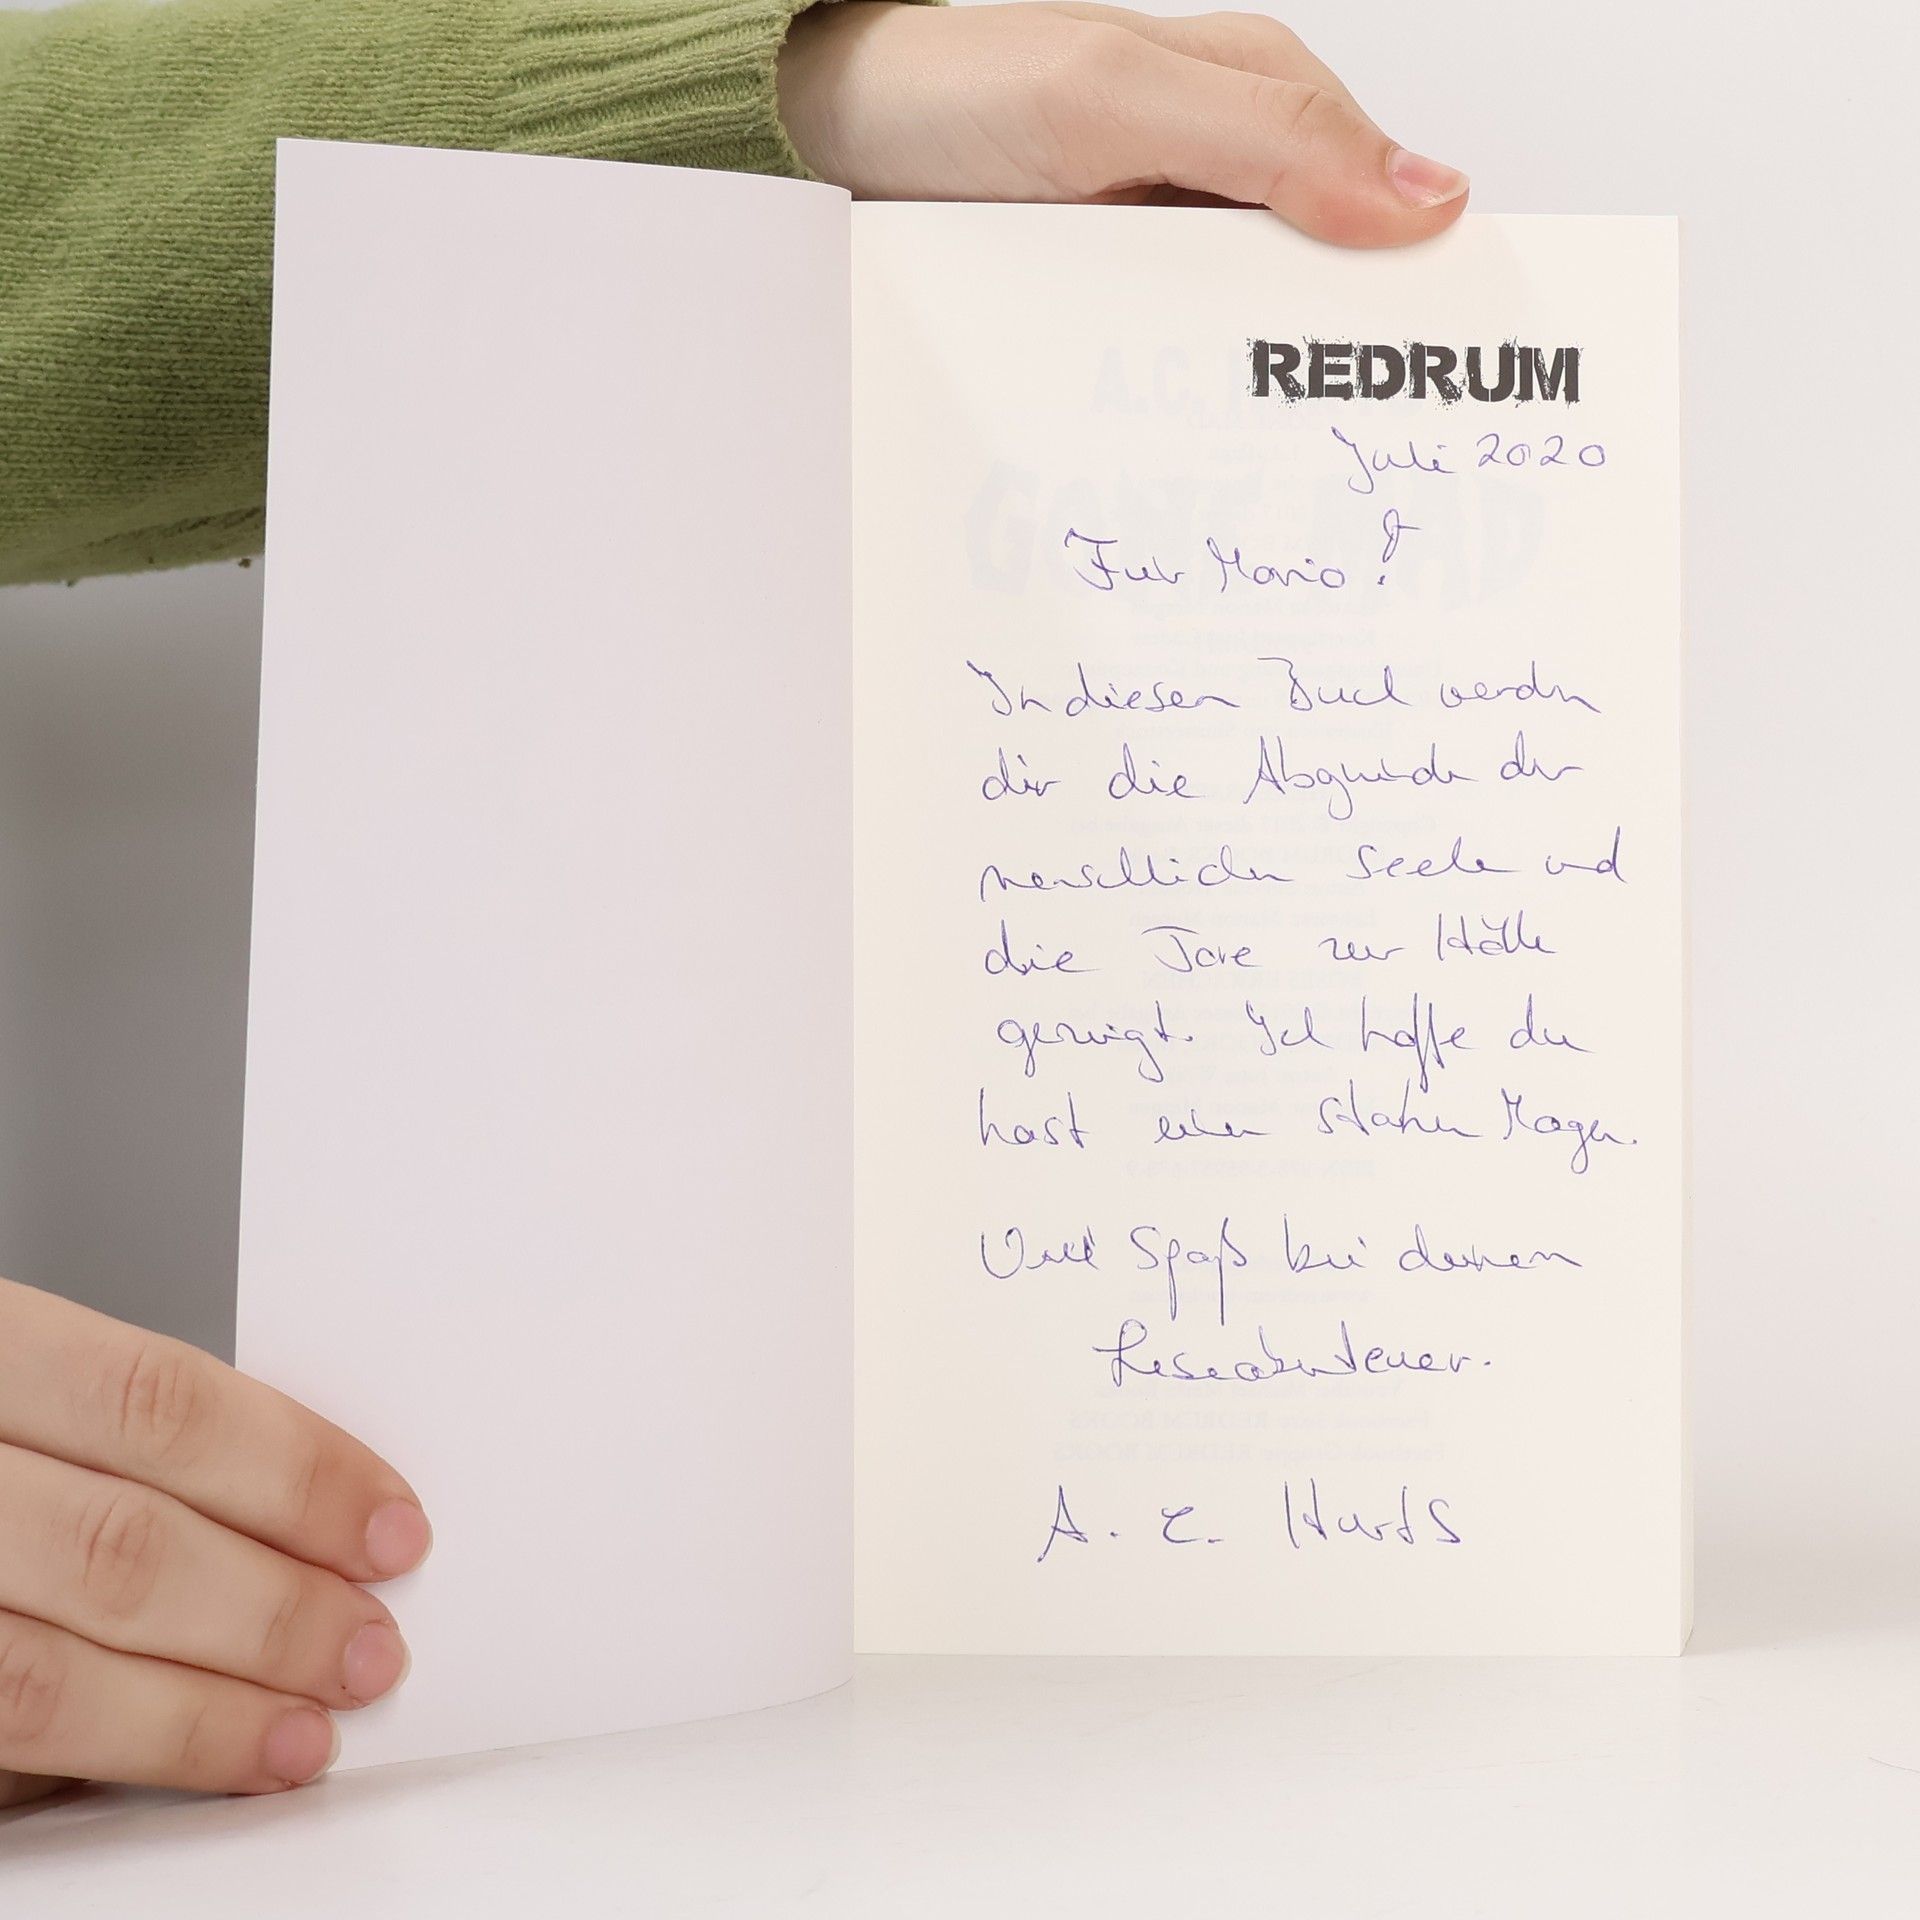 REDRUM
Juli 2020
Für Mario!
In diesem Buch werden
dir die Abgründe der
menschlichen Seele und
die Tore zur Hölle
gezeigt. Ich hoffe du
hast einen starken Magen.
Viel Spaß bei deinem
Leseabenteuer.
A. C. Hurts